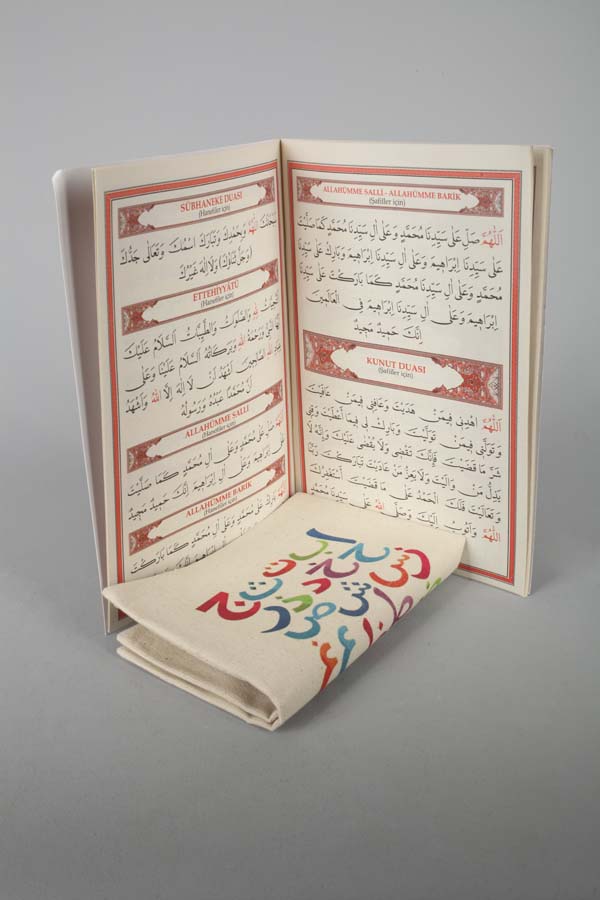 SÜBHANEKE DUASI
(Hanefiler için)
سُبْحَانَكَ اللّٰهُمَّ وَبِحَمْدِكَ وَتَبَارَكَ اسْمُكَ وَتَعَالٰى جَدُّكَ
(وَجَلَّ ثَنَاؤُكَ) وَلَا اِلٰهَ غَيْرُكَ
ETTEHİYYÂTÜ
(Hanefiler için)
اَلتَّحِيَّاتُ لِلّٰهِ وَالصَّلَوَاتُ وَالطَّيِّبَاتُ اَلسَّلَامُ عَلَيْكَ
اَيُّهَا النَّبِيُّ وَرَحْمَةُ اللّٰهِ وَبَرَكَاتُهُ اَلسَّلَامُ عَلَيْنَا وَعَلٰى
عِبَادِ اللّٰهِ الصَّالِحِينَ اَشْهَدُ اَنْ لَا اِلٰهَ اِلَّا اللّٰهُ وَاَشْهَدُ
اَنَّ مُحَمَّدًا عَبْدُهُ وَرَسُولُهُ
ALLAHÜMME SALLİ
(Hanefiler için)
اَللّٰهُمَّ صَلِّ عَلٰى مُحَمَّدٍ وَعَلٰى اٰلِ مُحَمَّدٍ كَمَا صَلَّيْتَ
عَلٰى اِبْرَاهِيمَ وَعَلٰى اٰلِ اِبْرَاهِيمَ اِنَّكَ حَمِيدٌ مَجِيدٌ
ALLAHÜMME BARİK
(Hanefiler için)
اَللّٰهُمَّ بَارِكْ عَلٰى مُحَمَّدٍ وَعَلٰى اٰلِ مُحَمَّدٍ كَمَا بَارَكْتَ
ALLAHÜMME SALLİ - ALLAHÜMME BARİK
(Şafiiler için)
اَللّٰهُمَّ صَلِّ عَلٰى سَيِّدِنَا مُحَمَّدٍ وَعَلٰى اٰلِ سَيِّدِنَا مُحَمَّدٍ كَمَا صَلَّيْتَ
عَلٰى سَيِّدِنَا اِبْرَاهِيمَ وَعَلٰى اٰلِ سَيِّدِنَا اِبْرَاهِيمَ وَبَارِكْ عَلٰى سَيِّدِنَا
مُحَمَّدٍ وَعَلٰى اٰلِ سَيِّدِنَا مُحَمَّدٍ كَمَا بَارَكْتَ عَلٰى سَيِّدِنَا
اِبْرَاهِيمَ وَعَلٰى اٰلِ سَيِّدِنَا اِبْرَاهِيمَ فِي الْعَالَمِينَ
اِنَّكَ حَمِيدٌ مَجِيدٌ
KUNUT DUASI
(Şafiiler için)
اَللّٰهُمَّ اهْدِنِي فِيمَنْ هَدَيْتَ وَعَافِنِي فِيمَنْ عَافَيْتَ
وَتَوَلَّنِي فِيمَنْ تَوَلَّيْتَ وَبَارِكْ لِي فِيمَا اَعْطَيْتَ وَقِنِي
شَرَّ مَا قَضَيْتَ فَاِنَّكَ تَقْضِي وَلَا يُقْضٰى عَلَيْكَ وَاِنَّهُ لَا
يَذِلُّ مَنْ وَالَيْتَ وَلَا يَعِزُّ مَنْ عَادَيْتَ تَبَارَكْتَ رَبَّنَا
وَتَعَالَيْتَ فَلَكَ الْحَمْدُ عَلٰى مَا قَضَيْتَ اَسْتَغْفِرُكَ
اَللّٰهُمَّ وَاَتُوبُ اِلَيْكَ وَصَلَّى اللّٰهُ عَلٰى سَيِّدِنَا مُحَمَّدٍ